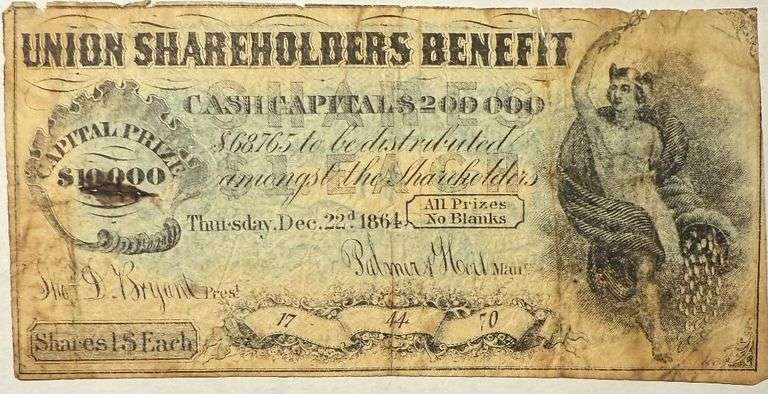 UNION SHAREHOLDERS BENEFIT
SHARES
CASH CAPITAL $200000
CAPITAL PRIZE
$10000
$68765 to be distributed
$1 EACH
amongst the Shareholders
Thursday, Dec. 22d 1864
All Prizes
No Blanks
Palmer &
Thos. D. Bryant Prest.
17 44 70
Shares 1$ Each